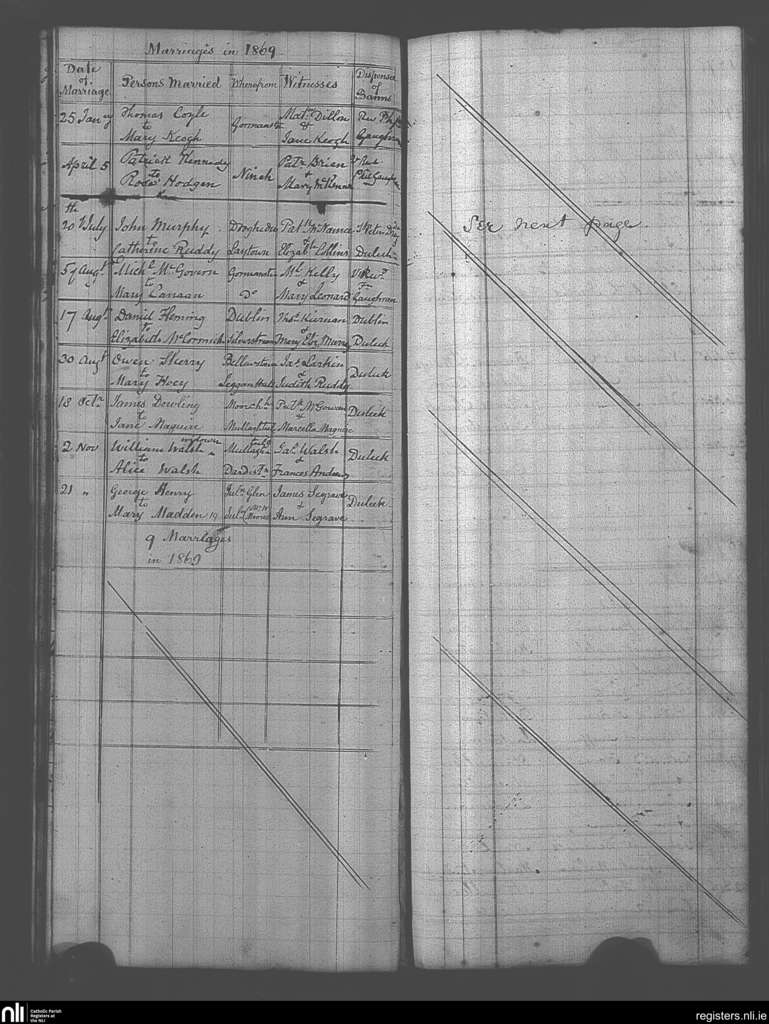 Marriages in 1869
Date of Marriage Persons Married Wherefrom Witnesses Dispensed of Banns
25 Jany Thomas Coyle Gormanstn Matw Dillon Rev P
to &
Mary Keogh Jane Keogh Gaughran
April 5 Patrick Kennedy Ninch Patk Brien
to &
Rose Hodgen Mary McKenna Gaughran
20th July John Murphy Drogheda Patk McNamee St Peters
to
Catherine Ruddy Laytown Elizabth Collins Duleek
5 of Augt Michl McGovern Gormanstn Ml Kelly
to &
Mary Canaan Do Mary Leonard Gaughran
17 Augt Daniel Fleming Dublin Thos Kiernan Dublin
to &
Elizabeth McCormick Silverstream Duleek
30 Augt Owen Sherry Bellewstown Jas Larkin Duleek
to &
Mary Hoey Judith Ruddy
18 Octr James Dowling Patk McGowan Duleek
to &
Jane Maguire Marcella Maguire
2 Nov William Walsh Jas Walsh Duleek
to &
Alice Walsh Frances Andrews
21 " George Henry July Glen James Segrave Duleek
to &
Mary Madden Ann Segrave
9 Marriages
in 1869
See next page
nli Catholic Parish
Registers at
the NLI
registers.nli.ie